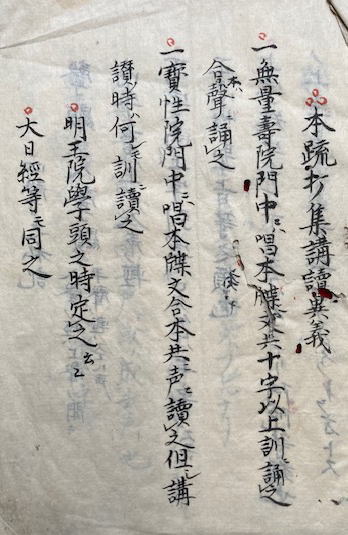 本疏抄集講讀異義
一無量壽院門中ニハ唱本牒文共十字以上訓誦之
合聲ニ誦之
一寶性院門中ニハ唱本牒文合本共ニ声ニ讀之但シ講
讃時ハ何モ訓ニ讀之
明王院學頭之時定之云々
大日經等モ同之